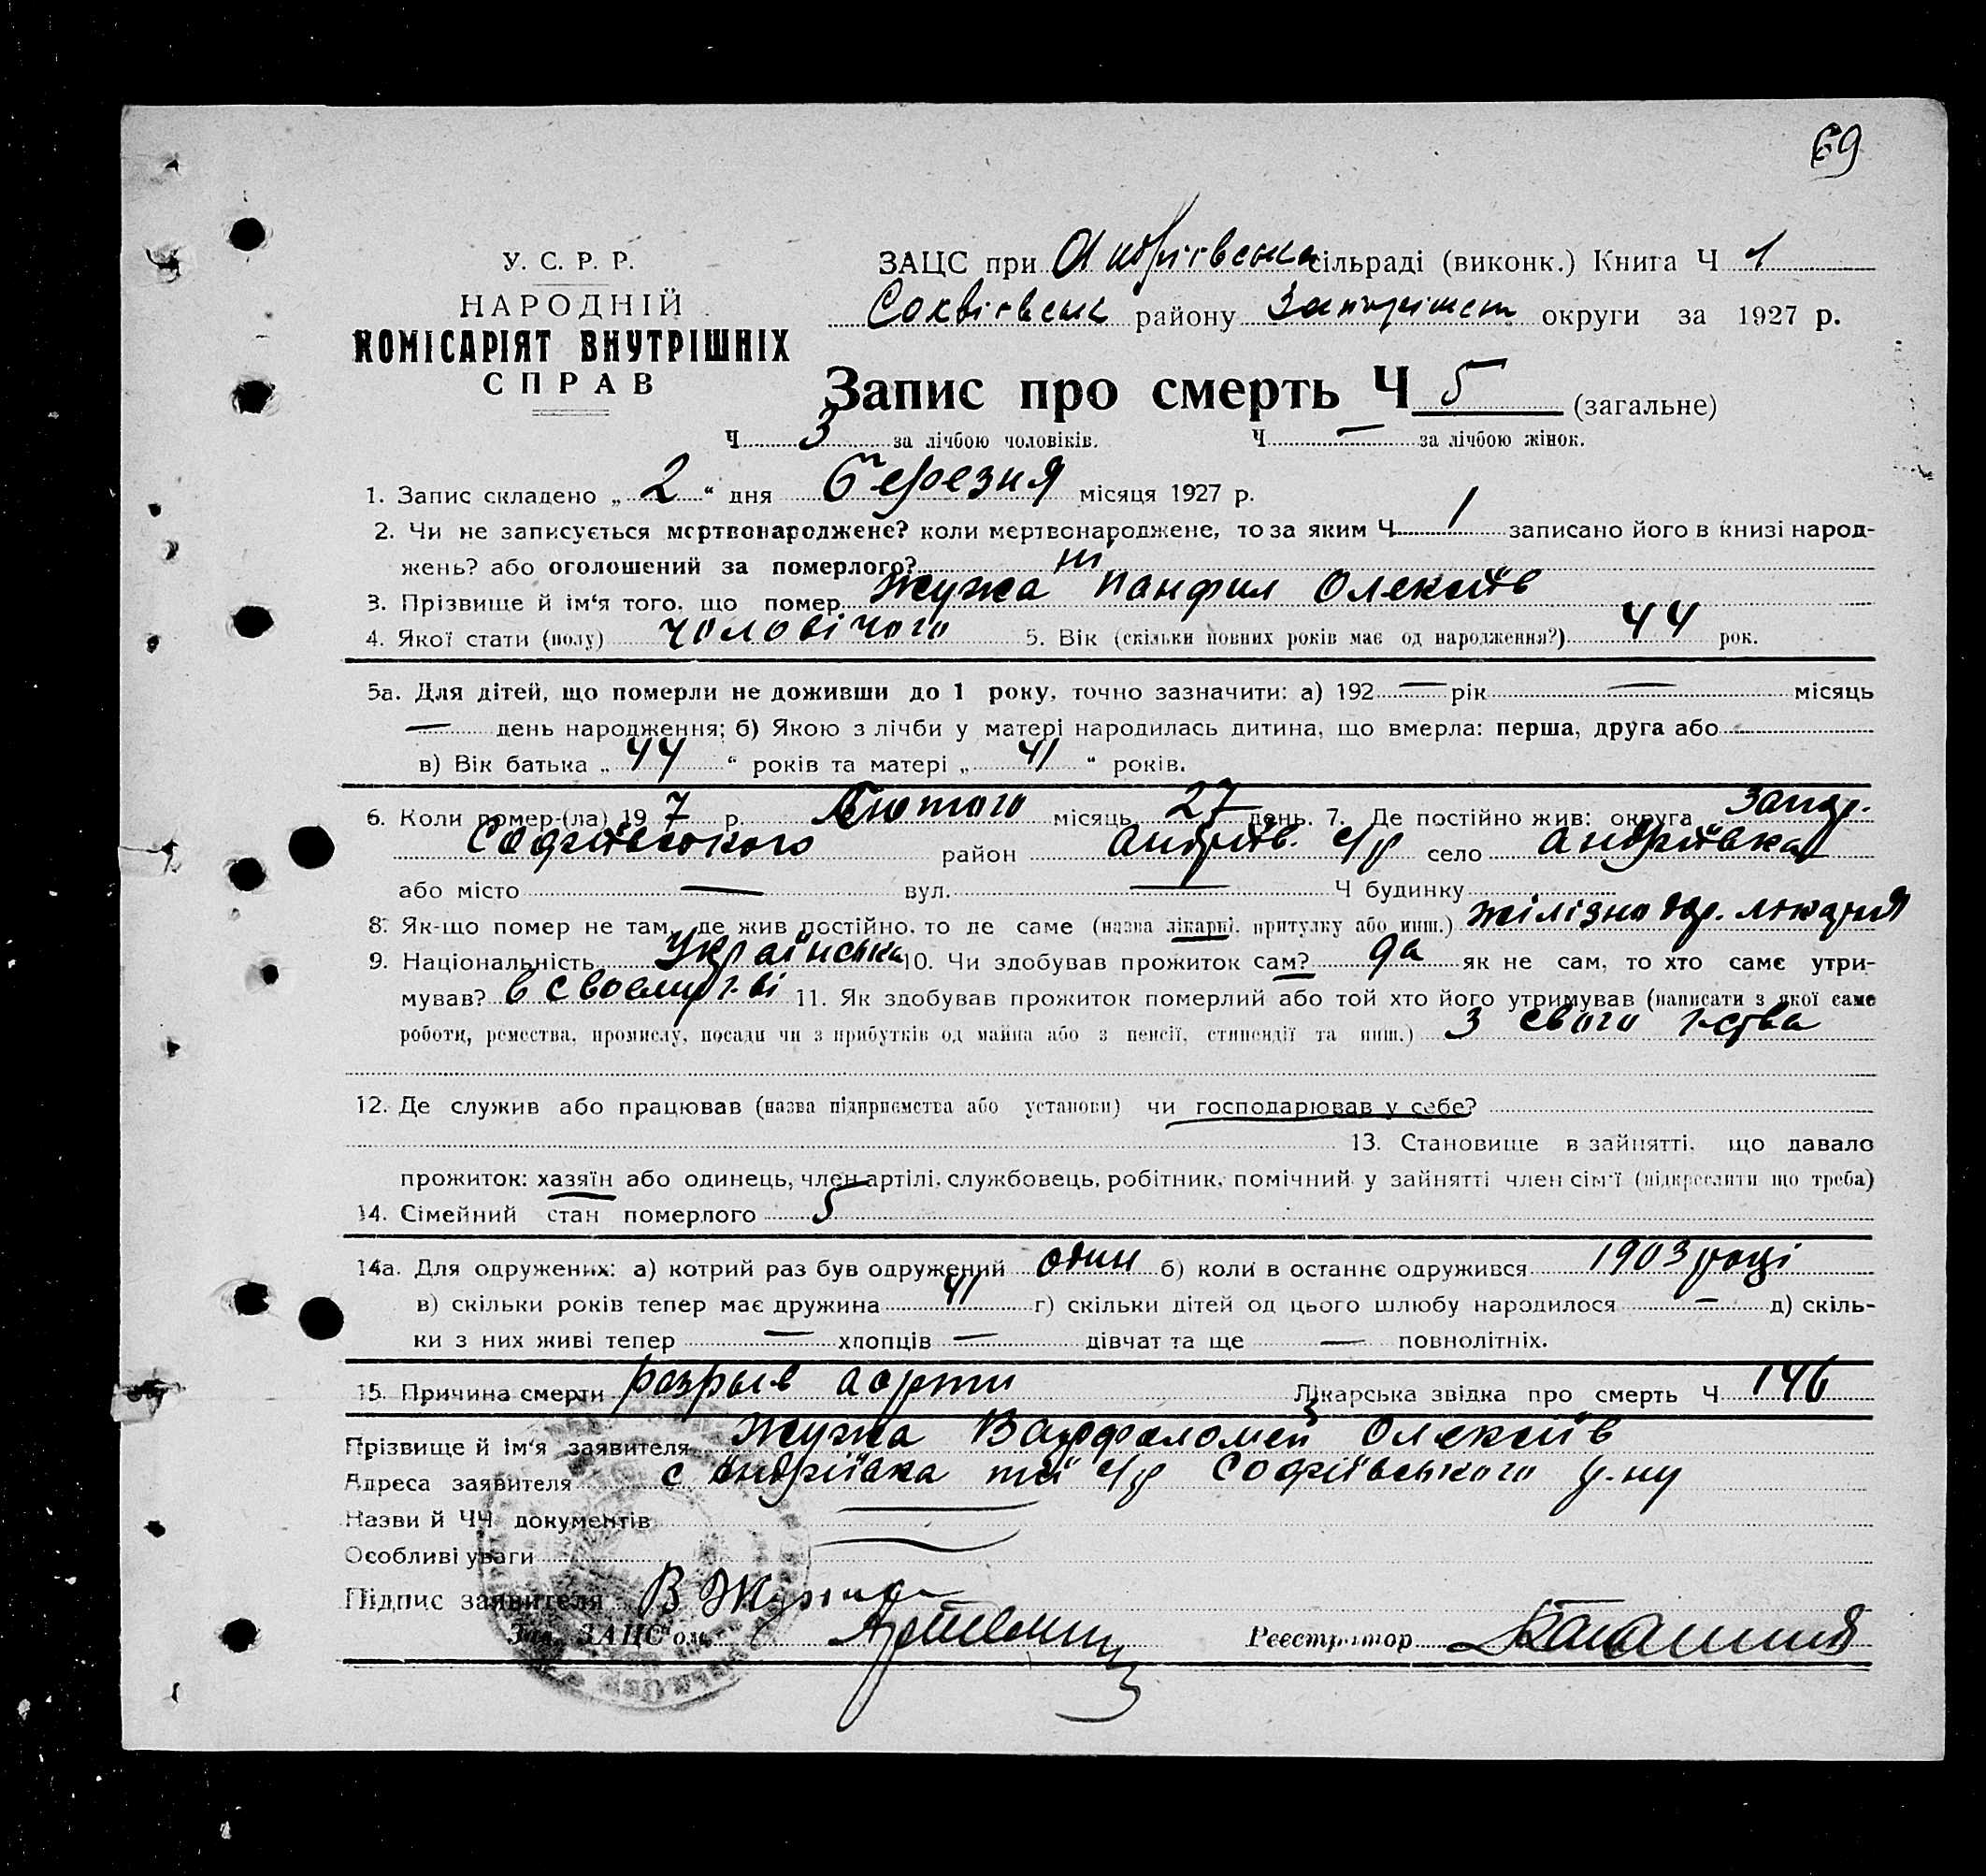 69
У. С. Р. Р.
НАРОДНІЙ
КОМІСАРІЯТ ВНУТРІШНІХ
СПРАВ
ЗАЦС при Андріївська сільраді (виконк.) Книга Ч 1
району округи за 1927 р.
Запис про смерть Ч 5 (загальне)
Ч 3 за лічбою чоловіків. Ч — за лічбою жінок.
1. Запис складено „ 2 “ дня Березня місяця 1927 р.
2. Чи не записується мертвонароджене? коли мертвонароджене, то за яким Ч / записано його в книзі народ-
жень? або оголошений за померлого? ні
3. Прізвище й ім‘я того, що помер Жужа Панфил Олексіїв
4. Якої стати (полу) чоловічого 5. Вік (скільки повних років має од народження?) 44 рок.
5а. Для дітей, що померли не доживши до 1 року, точно зазначити: а) 192 — рік — місяць
— день народження; б) Якою з лічби у матері народилась дитина, що вмерла: перша, друга або —
в) Вік батька „ 44 “ років та матері „ 41 “ років.
6. Коли помер-(ла) 19 7 р. Лютого місяць 27 день. 7. Де постійно жив: округа Запор.
Софіївського район Андріїв. с/р село Андріївка
або місто — вул. — Ч будинку
8. Як-що помер не там, де жив постійно, то де саме (назва лікарні, притулку або инш.) жілізнодор. лікарня
9. Національність Українська 10. Чи здобував прожиток сам? да як не сам, то хто саме утри-
мував? в своему г-ві 11. Як здобував прожиток померлий або той хто його утримував (написати з якої саме
роботи, ремества, промислу, посади чи з прибутків од майна або з пенсії, стипендії та инш.) З свого г-ства
12. Де служив або працював (назва підприємства або установи) чи господарював у себе?
13. Становище в зайнятті, що давало
прожиток: хазяїн або одинець, член артілі, службовець, робітник, помічний у зайнятті член сім‘ї (підкреслити що треба)
14. Сімейний стан померлого 5
14а. Для одружених: а) котрий раз був одружений один б) коли в останнє одружився 1903 році
в) скільки років тепер має дружина 41 г) скільки дітей од цього шлюбу народилося — д) скіль-
ки з них живі тепер — хлопців — дівчат та ще — повнолітніх.
15. Причина смерти разрыв аорти Лікарська звідка про смерть Ч 146
Прізвище й ім‘я заявителя Жужа Варфоломей Олексіїв
Адреса заявителя с Андріївка тої с/р Софіївського р-ну
Назви й ЧЧ документів
Особливі уваги
Підпис заявителя В
Зав. ЗАЦС‘ом
Реєстратор